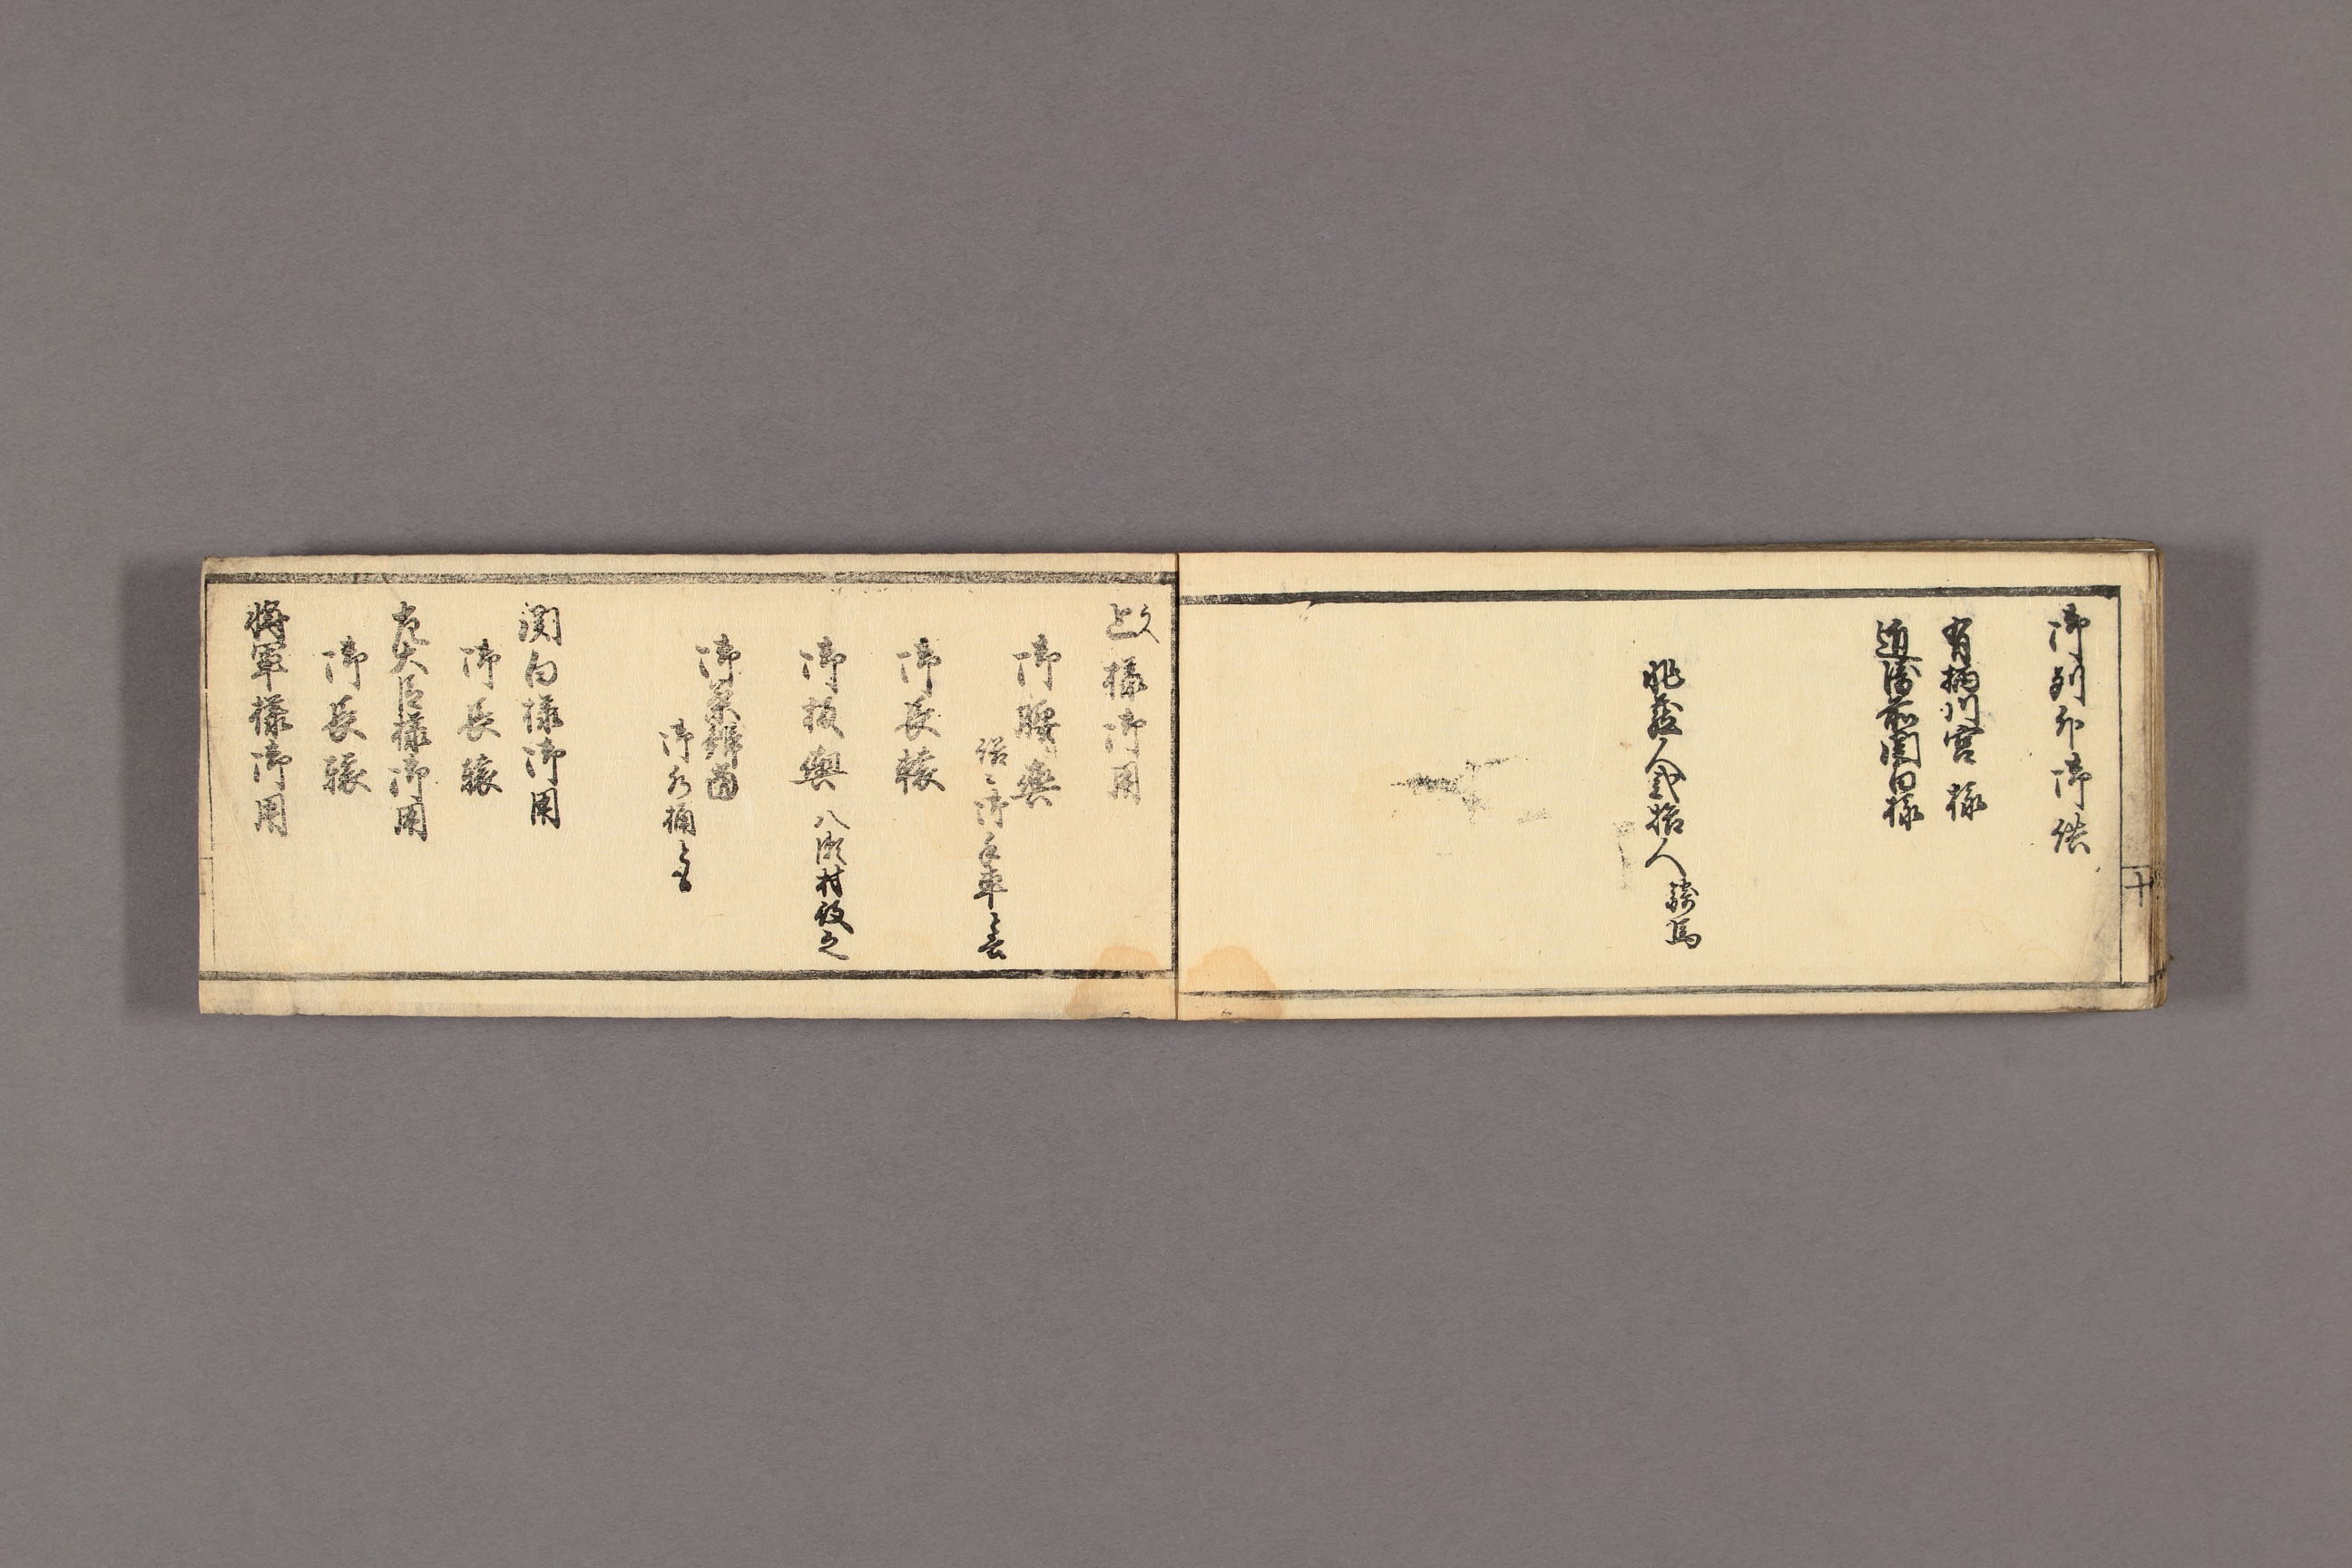 御列外御供
有栖川宮様
近衛前関白様
非蔵人弐拾人 騎馬
十
上様御用
御腰輿
御手車
御長轅
御板輿 八瀬村役之
御菓辨当
御水桶
関白様御用
御長轅
左大臣様御用
御長轅
将軍様御用